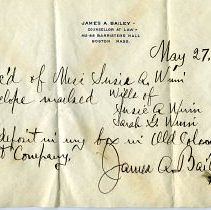 JAMES A. BAILEY
COUNSELLOR AT LAW
BARRISTERS HALL
BOSTON MASS.
May 27.
c'd of Miss Susie A. Winn
elope marked Wills of
Susie A Winn
Sarah G Winn
deposit in my box in Old Colon
t Company,
James A. Bail